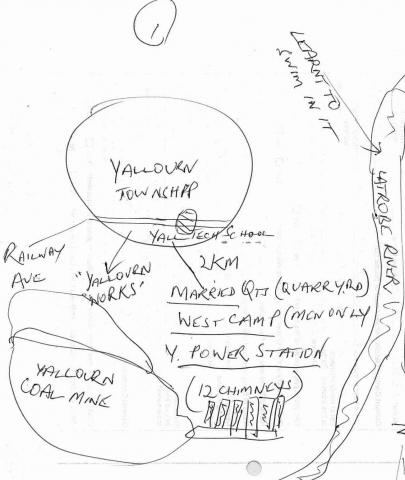 1
LEARNT TO
SWIM IN IT
YALLOURN
TOWNSHPP
LATROBE RIVER
YALL TECH SCHOOL
RAILWAY
AVE
"YALLOURN
"WORKS'
2KM
MARRIED QTS (QUARRY RD)
WEST CAMP (MEN ONLY
Y. POWER STATION
(12 CHIMNEYS)
YALLOURN
COAL MINE
N